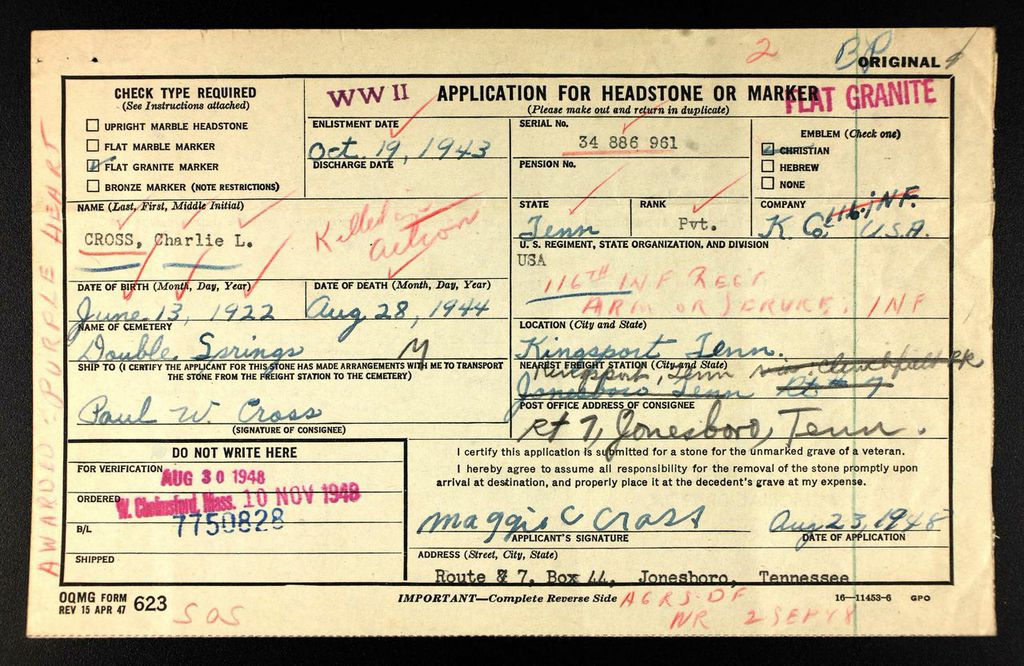 2 BP
ORIGINAL
CHECK TYPE REQUIRED
(See Instructions attached)
UPRIGHT MARBLE HEADSTONE
FLAT MARBLE MARKER
FLAT GRANITE MARKER
BRONZE MARKER (NOTE RESTRICTIONS)
WW II
APPLICATION FOR HEADSTONE OR MARKER
(Please make out and return in duplicate)
FLAT GRANITE
ENLISTMENT DATE
Oct. 19, 1943
DISCHARGE DATE
SERIAL No.
34 886 961
PENSION No.
EMBLEM (Check one)
CHRISTIAN
HEBREW
NONE
NAME (Last, First, Middle Initial)
CROSS, Charlie L.
Killed in
action
STATE
Tenn
RANK
Pvt.
COMPANY
K Co 116 INF.
U.S.A.
U. S. REGIMENT, STATE ORGANIZATION, AND DIVISION
USA
116TH INF REGT
ARM OR SERVICE: INF
DATE OF BIRTH (Month, Day, Year)
June 13, 1922
DATE OF DEATH (Month, Day, Year)
Aug 28, 1944
NAME OF CEMETERY
Double Springs
LOCATION (City and State)
Kingsport Tenn.
SHIP TO (I CERTIFY THE APPLICANT FOR THIS STONE HAS MADE ARRANGEMENTS WITH ME TO TRANSPORT
THE STONE FROM THE FREIGHT STATION TO THE CEMETERY)
Paul W. Cross
(SIGNATURE OF CONSIGNEE)
NEAREST FREIGHT STATION (City and State)
Kingsport, Tenn
Jonesboro Tenn Rt # 7
POST OFFICE ADDRESS OF CONSIGNEE
Rt 7, Jonesboro, Tenn.
DO NOT WRITE HERE
FOR VERIFICATION
AUG 30 1948
ORDERED
W. Chelmsford, Mass. 10 NOV 1948
B/L
7750828
SHIPPED
I certify this application is submitted for a stone for the unmarked grave of a veteran.
I hereby agree to assume all responsibility for the removal of the stone promptly upon
arrival at destination, and properly place it at the decedent's grave at my expense.
Maggie C Cross
APPLICANT'S SIGNATURE
Aug 23, 1948
DATE OF APPLICATION
ADDRESS (Street, City, State)
Route # 7, Box 44, Jonesboro, Tennessee
AWARDED - PURPLE HEART
OQMG FORM
REV 15 APR 47 623
IMPORTANT—Complete Reverse Side
16—11453-6 GPO
SOS
AGRS-DF
NR 2 SEP 48